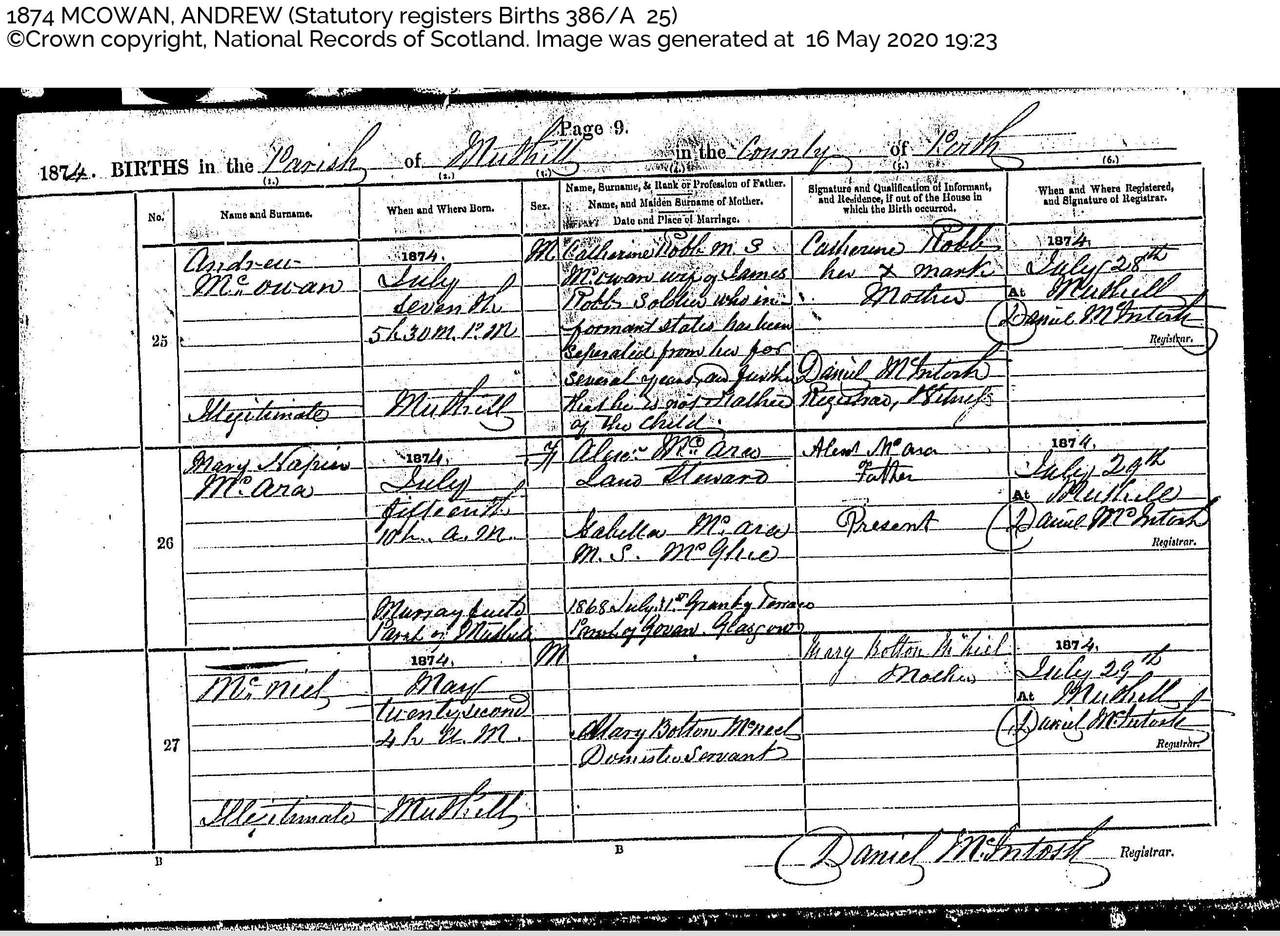 1874 MCOWAN, ANDREW (Statutory registers Births 386/A 25)
©Crown copyright, National Records of Scotland. Image was generated at 16 May 2020 19:23
Page 9.
1874. BIRTHS in the Parish of Muthill in the County of Perth
(1.) (2.) (3.) (4.) (5.) (6.)
No.
Name and Surname.
When and Where Born.
Sex.
Name, Surname, & Rank or Profession of Father.
Name, and Maiden Surname of Mother.
Date and Place of Marriage.
Signature and Qualification of Informant,
and Residence, if out of the House in
which the Birth occurred.
When and Where Registered,
and Signature of Registrar.
25
Andrew
McOwan
Illegitimate
1874.
July
seventh
5h 30m P.M
Muthill
M
Catherine Robb M.S
McOwan wife of James
Robb Soldier who in-
formant states has been
seperated from her for
several years, and further
that he is not Father
of the Child.
Catherine Robb
her x mark
Mother
Daniel McIntosh
Registrar, Witness
1874.
July 28th
At Muthill
Daniel McIntosh
Registrar.
26
Mary Napier
McAra
1874.
July
fifteenth
10h. A.M.
Murray
Parish of Muthill
F
Alexr McAra
Land Steward
Isabella McAra
M.S. McGhie
1868 July Granby Terrace
Parish of Govan. Glasgow
Alexr McAra
Father
Present
1874.
July 29th
At Muthill
Daniel McIntosh
Registrar.
27
McNiel
Illegitimate
1874.
May
twenty second
4h A.M.
Muthill
M
Mary Bolton McNeil
Domestic Servant
Mary Bolton McNiel
Mother
1874.
July 29th
At Muthill
Daniel McIntosh
Registrar.
B
B
Daniel McIntosh Registrar.